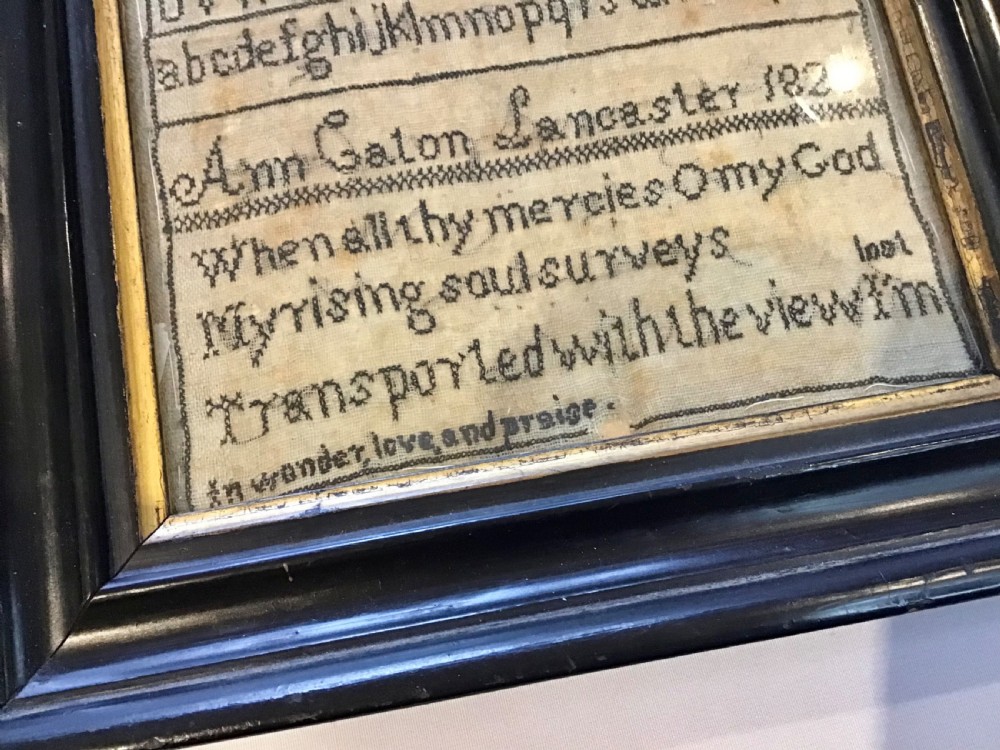 abcdefghijklmnopqrs
Ann Eaton Lancaster 182
When all thy mercies O my God
My rising soul surveys
lost
Transported with the view I'm
in wonder, love, and praise.